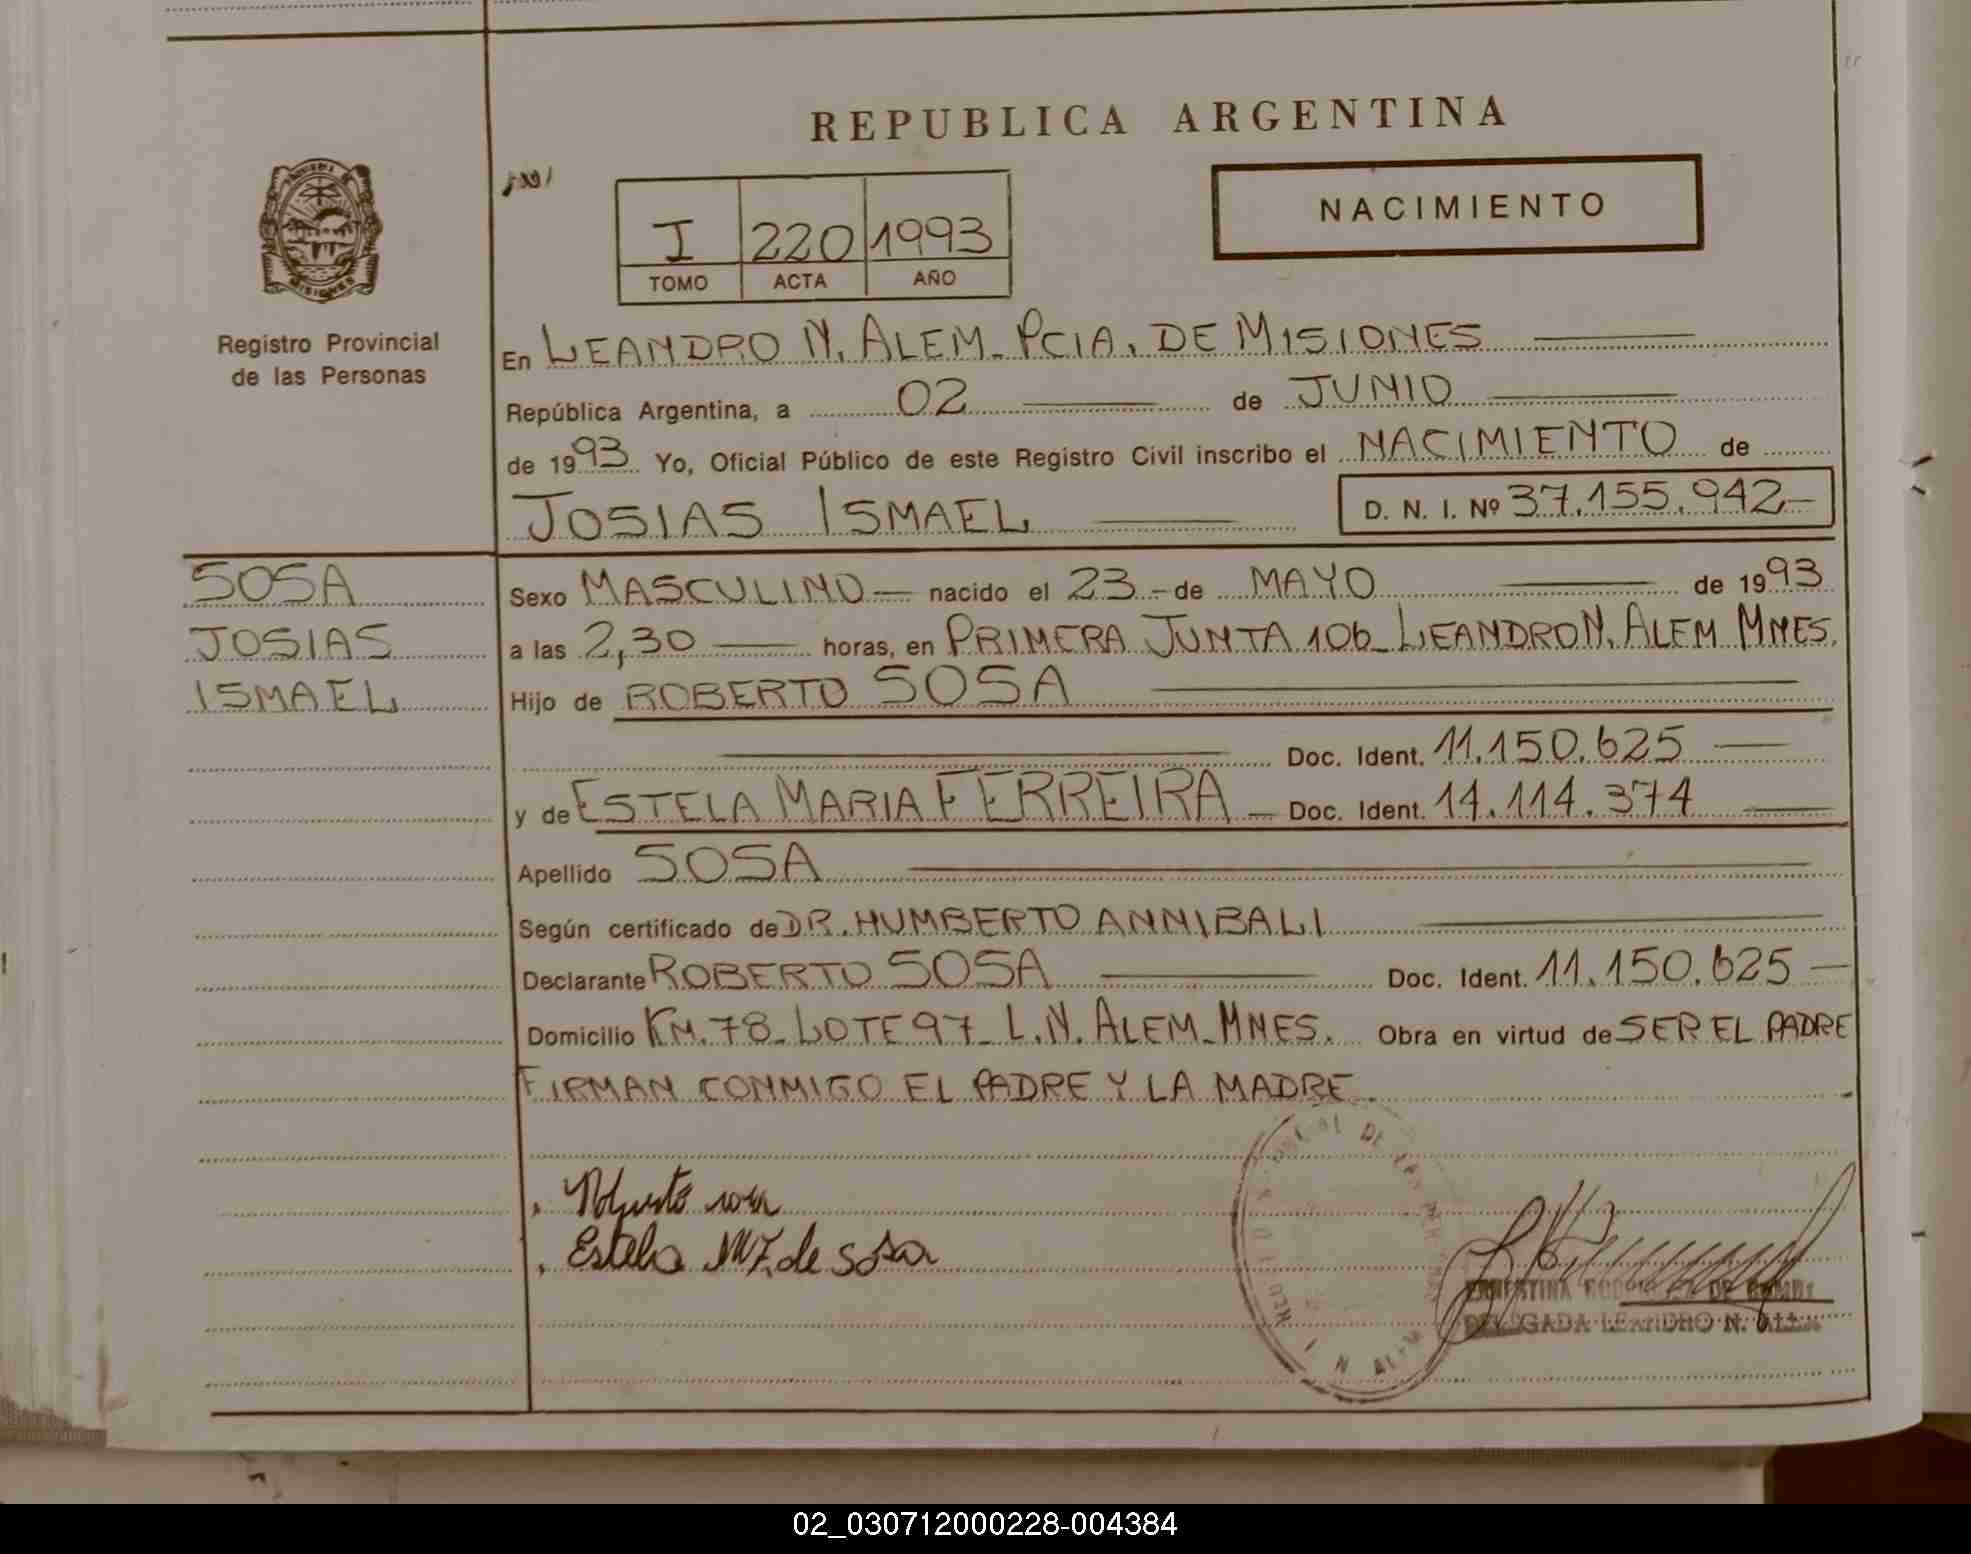 REPUBLICA ARGENTINA
NACIMIENTO
I 220 1993
TOMO ACTA AÑO
MISIONES
Registro Provincial
de las Personas
En LEANDRO N. ALEM - PCIA. DE MISIONES
República Argentina, a 02 de JUNIO
de 1993 Yo, Oficial Público de este Registro Civil inscribo el NACIMIENTO de
JOSIAS ISMAEL D. N. I. Nº 37.155.942-
SOSA
JOSIAS
ISMAEL
Sexo MASCULINO - nacido el 23 - de MAYO de 1993
a las 2,30 horas, en PRIMERA JUNTA 106 - LEANDRO N. ALEM MNES.
Hijo de ROBERTO SOSA
Doc. Ident. 11.150.625
y de ESTELA MARIA FERREIRA - Doc. Ident. 14.114.374
Apellido SOSA
Según certificado de DR. HUMBERTO ANNIBALI
Declarante ROBERTO SOSA Doc. Ident. 11.150.625
Domicilio KM. 78 - LOTE 97 - L.N. ALEM - MNES. Obra en virtud de SER EL PADRE
FIRMAN CONMIGO EL PADRE Y LA MADRE
Roberto sosa
Estela M F. de sosa
DELEGADA LEANDRO N. ALEM
02_030712000228-004384